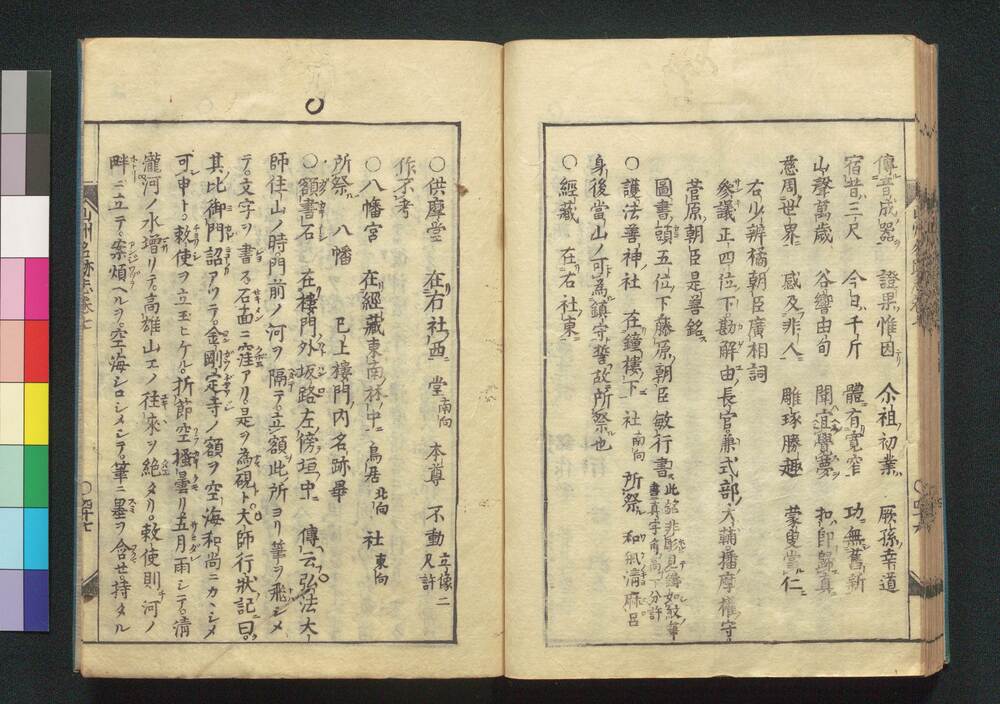 傳音成器 證果惟因 尒祖初業 厥孫幸道
宿昔三尺 今日千斤 體有寛窄 功無舊新
山聲萬歳 谷響由旬 聞宜覺夢 扣即歸真
慈周世界 感及非人 雕琢勝趣 蒙叟當仁
右少辨橘朝臣廣相詞
參議正四位下勘解由長官兼式部大輔播摩權守
菅原朝臣是善銘
圖書頭五位下藤原朝臣敏行書
護法善神社 在鐘樓下 社南向 所祭 和氣清麻呂
身後當山ノ可為鎮守誓故所祭也
○經藏 在右社東
○供摩堂 在右社西 堂南向 本尊 不動立像二尺許
作不考
○八幡宮 在經藏東南林中 鳥居北向 社東向
所祭 八幡 已上樓門内名跡畢
○額書石 在樓門外坂路左傍垣中 傳云弘法大
師住山ノ時門前ノ河ヲ隔テ立額此所ヨリ筆ヲ飛シメ
テ文字ヲ書ス石面ニ窪アリ是ヲ為硯ト大師行狀記曰
其比御門詔アツテ金剛定寺ノ額ヲ空海和尚ニカヽシメ
可申ト敕使ヲ立玉ヒケル折節空極曇リ五月雨シテ清
瀧河ノ水増リテ高雄山エノ往來ヲ絶タリ敕使則河ノ
畔ニ立テ案煩ヘルヲ空海シロシメシテ筆ニ墨ヲ含セ持タル
山州名跡志卷七
○四十七